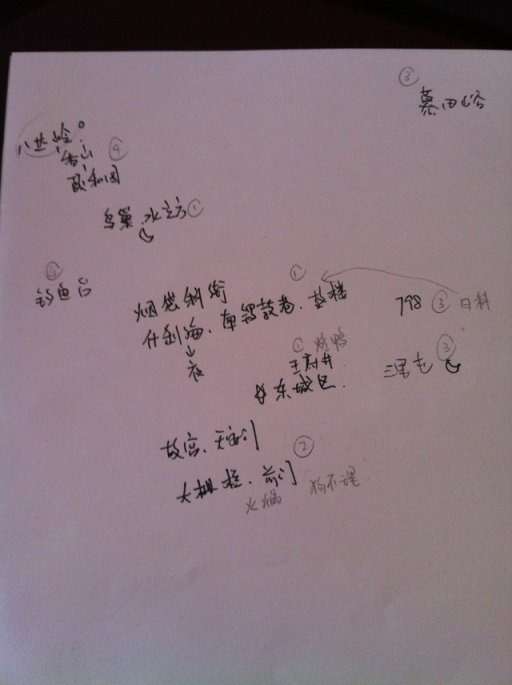 ③
慕田峪
八达岭
香山 ④
颐和园
鸟巢.水立方①
④
钓鱼台
①
烟袋斜街
什刹海、南锣鼓巷、鼓楼
↓
夜
798 ③ 日料
① 烤鸭
王府井
东城区.
三里屯 ③
故宫、天安门
②
大栅栏、前门
火锅 狗不理